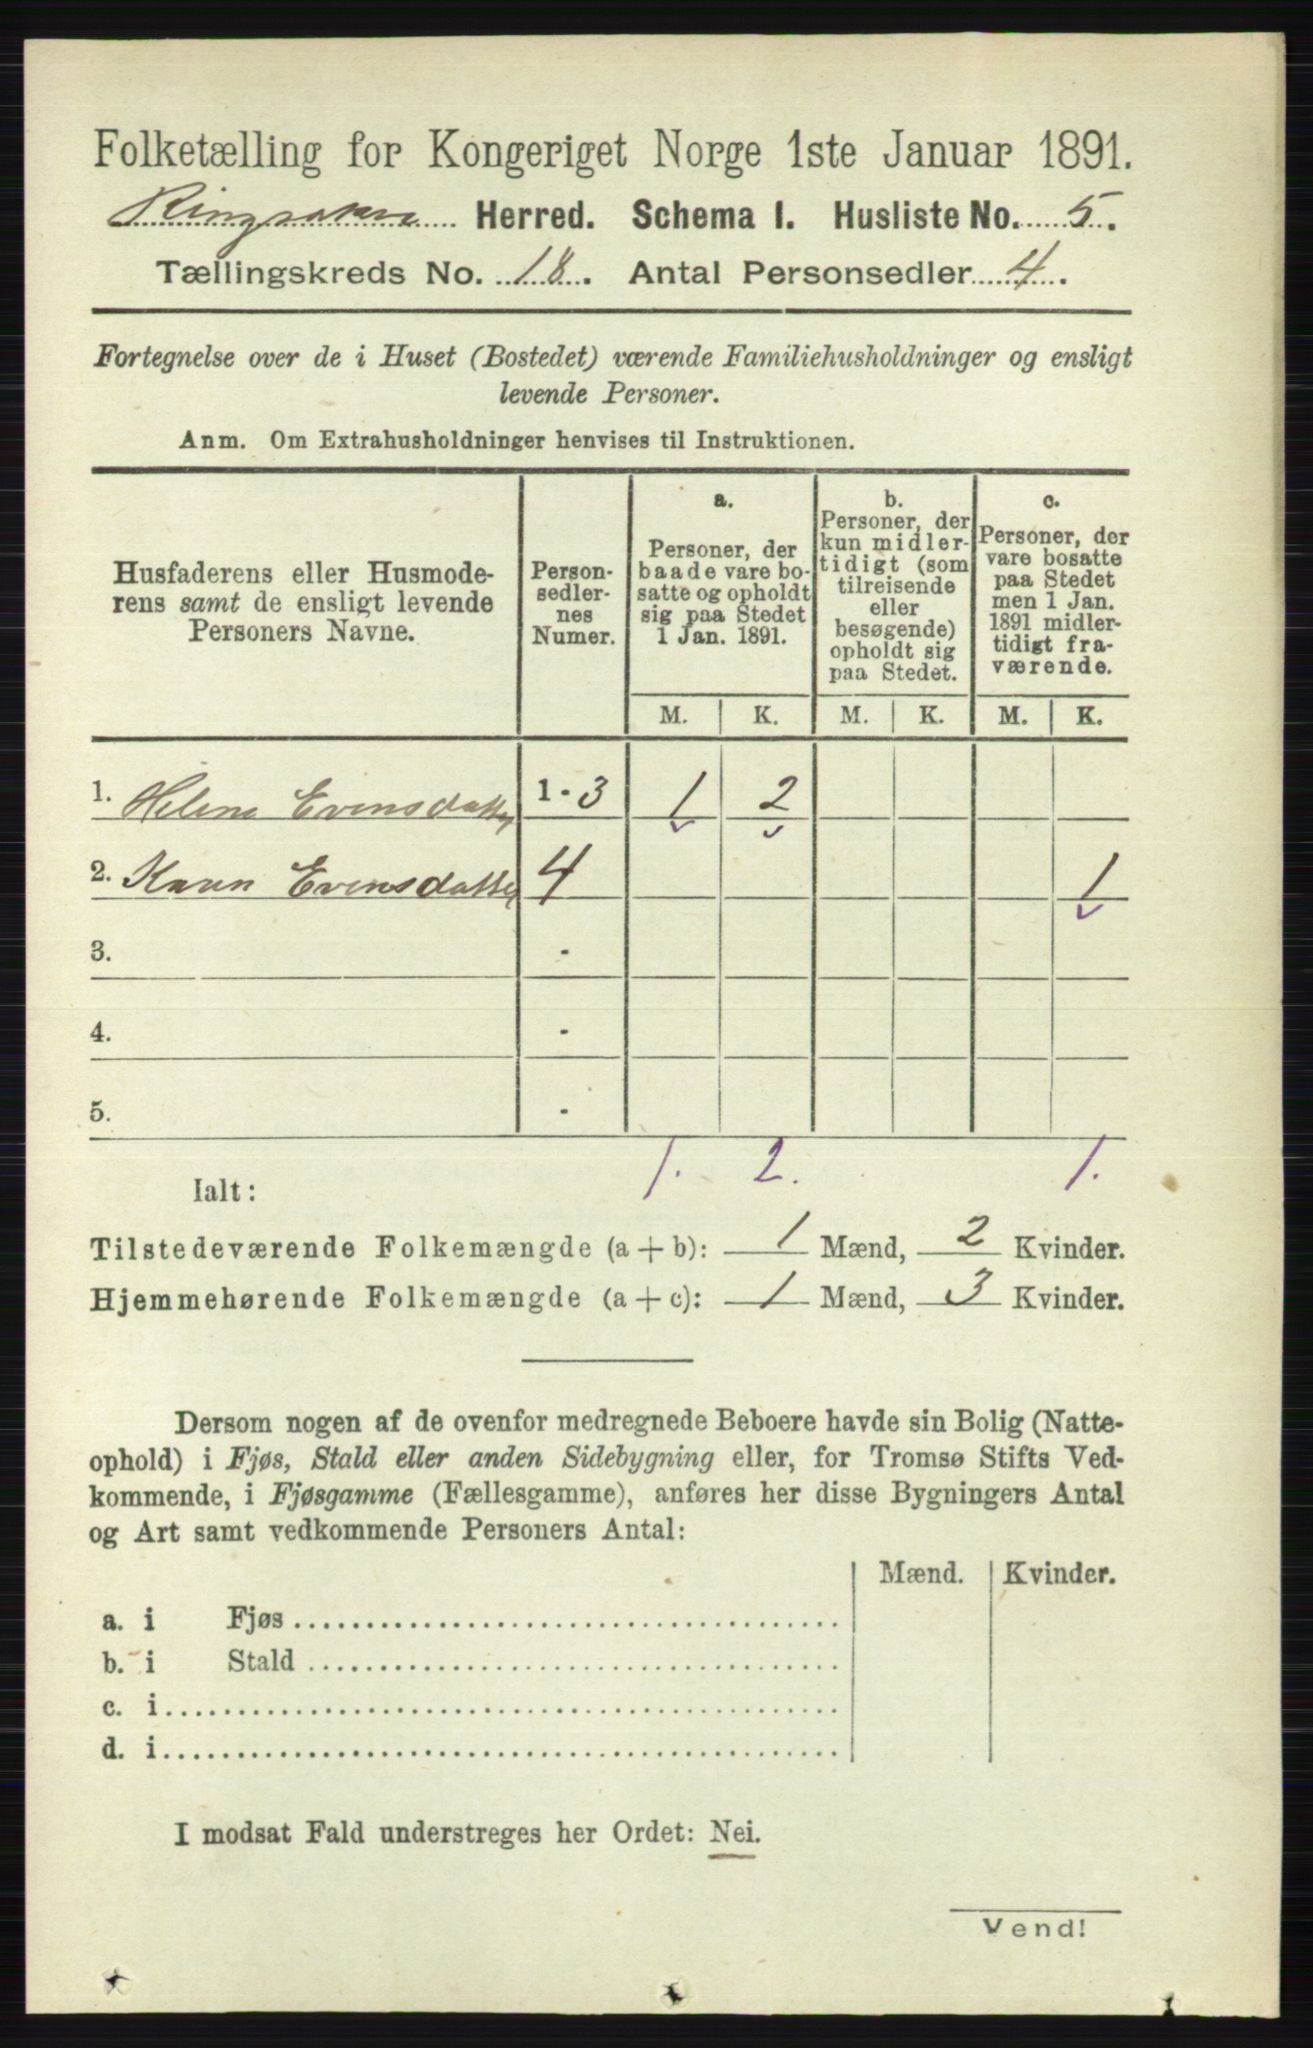 Folketælling for Kongeriget Norge 1ste Januar 1891.
Ringsaker Herred. Schema I. Husliste No. 5.
Tællingskreds No. 18. Antal Personsedler 4.
Fortegnelse over de i Huset (Bostedet) værende Familiehusholdninger og ensligt
levende Personer.
Anm. Om Extrahusholdninger henvises til Instruktionen.
Husfaderens eller Husmode-
rens samt de ensligt levende
Personers Navne.
Person-
sedler-
nes
Numer.
a.
Personer, der
baade vare bo-
satte og opholdt
sig paa Stedet
1 Jan. 1891.
b.
Personer, der
kun midler-
tidigt (som
tilreisende
eller
besøgende)
opholdt sig
paa Stedet.
c.
Personer, der
vare bosatte
paa Stedet
men 1 Jan.
1891 midler-
tidigt fra-
værende.
M. K. M. K. M. K.
1. Helene Evensdatter 1 - 3 1 2
2. Karen Evensdatter 4 1
3. -
4. -
5. -
1. 2. 1.
Ialt:
Tilstedeværende Folkemængde (a + b): 1 Mænd, 2 Kvinder.
Hjemmehørende Folkemængde (a + c): 1 Mænd, 3 Kvinder.
Dersom nogen af de ovenfor medregnede Beboere havde sin Bolig (Natte-
ophold) i Fjøs, Stald eller anden Sidebygning eller, for Tromsø Stifts Ved-
kommende, i Fjøsgamme (Fællesgamme), anføres her disse Bygningers Antal
og Art samt vedkommende Personers Antal:
Mænd. Kvinder.
a. i Fjøs
b. i Stald
c. i
d. i
I modsat Fald understreges her Ordet: Nei.
Vend!